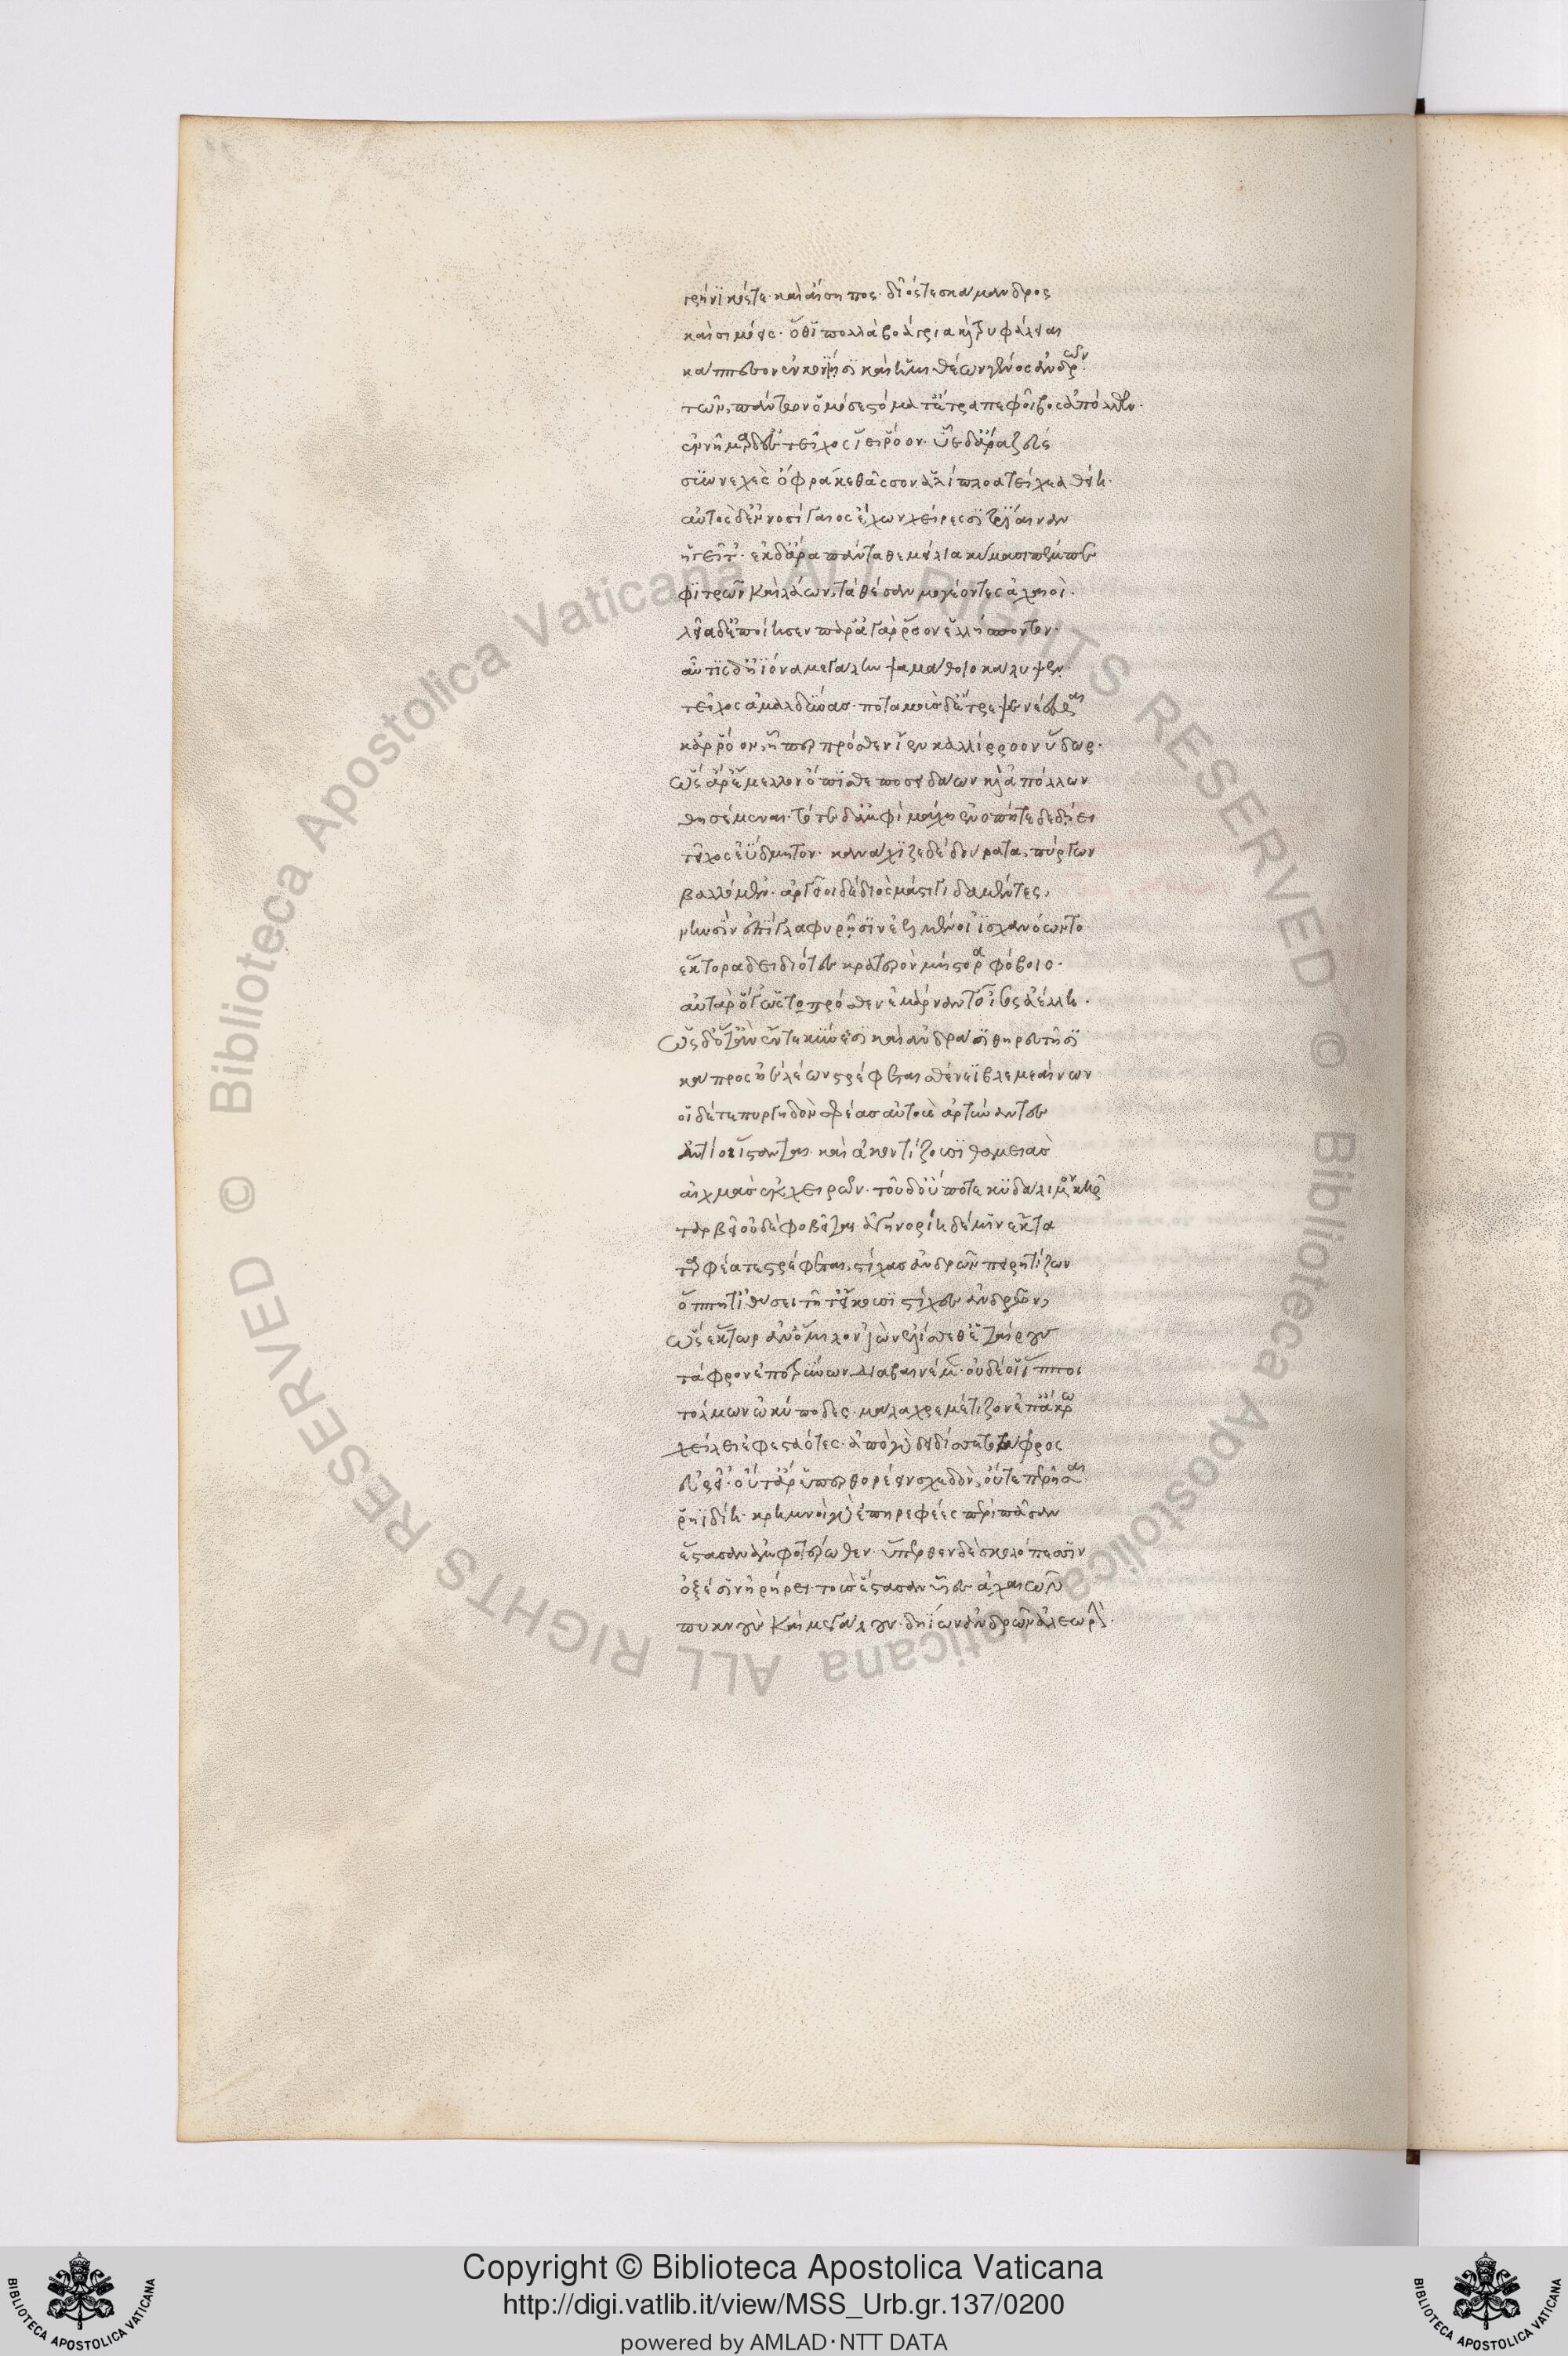 γρήνικός τε καὶ αἴσηπος δῖός τε σκάμανδρος
καὶ σιμόεις ὅθι πολλὰ βοάγρια καὶ τρυφάλειαι
κάππεσον ἐν κονίῃσι καὶ ἡμιθέων γένος ἀνδρῶν
τῶν πάντων ὁμόσε στόματ' ἔτραπε φοῖβος ἀπόλλων
ἐννῆμαρ δ' ἐς τεῖχος ἵει ῥόον ὗε δ' ἄρα ζεὺς
συνεχὲς ὄφρά κε θᾶσσον ἁλίπλοα τείχεα θείη
αὐτὸς δ' ἐννοσίγαιος ἔχων χείρεσσι τρίαιναν
ἡγεῖτ' ἐκ δ' ἄρα πάντα θεμείλια κύμασι πέμπε
φιτρῶν καὶ λάων τὰ θέσαν μογέοντες ἀχαιοὶ
λεῖα δ' ἐποίησεν παρ' ἀγάρροον ἑλλήσποντον
αὖτις δ' ἠϊόνα μεγάλην ψαμάθοισι κάλυψεν
τεῖχος ἀμαλδύνας ποταμοὺς δ' ἔτρεψε νέεσθαι
κὰρ ῥόον ᾗ περ πρόσθεν ἵεν καλλίρροον ὕδωρ
ὣς ἄρ' ἔμελλον ὄπισθε ποσειδάων καὶ ἀπόλλων
θησέμεναι τότε δ' ἀμφὶ μάχη ἐνοπή τε δεδήει
τεῖχος ἐΰδμητον κανάχιζε δὲ δούρατα πύργων
βαλλόμεν' ἀργεῖοι δὲ διὸς μάστιγι δαμέντες
νηυσὶν ἐπὶ γλαφυρῇσιν ἐελμένοι ἰσχανόωντο
ἕκτορα δειδιότες κρατερὸν μήστωρα φόβοιο
αὐτὰρ ὅγ' ὡς τοπρόσθεν ἐμάρνατο ἶσος ἀέλλῃ
ὡς δ' ὅτ' ἂν ἔν τε κύνεσσι καὶ ἀνδράσι θηρευτῇσι
κάπριος ἠὲ λέων στρέφεται σθένεϊ βλεμεαίνων
οἱ δέ τε πυργηδὸν σφέας αὐτοὺς ἀρτύναντες
ἀντίοι ἵστανται καὶ ἀκοντίζουσι θαμειὰς
αἰχμὰς ἐκ χειρῶν τοῦ δ' οὔ ποτε κυδάλιμον κῆρ
ταρβεῖ οὐδὲ φοβεῖται ἀγηνορίη δέ μιν ἔκτα
ταρφέα τε στρέφεται στίχας ἀνδρῶν πειρητίζων
ὅππῃ τ' ἰθύσει τῇ τ' εἴκουσι στίχες ἀνδρῶν
ὣς ἕκτωρ ἀν' ὅμιλον ἰὼν ἐλίσσεθ' ἑταίρους
τάφρον ἐποτρύνων διαβαινέμεν οὐδέ οἱ ἵπποι
τόλμων ὠκύποδες μάλα χρεμέτιζον ἐπ' ἄκρῳ
χείλει ἐφεσταότες ἀπὸ γὰρ δειδίσσετο τάφρος
εὐρεῖ' οὔτ' ἄρ' ὑπερθορέειν σχεδὸν οὔτε περῆσαι
ῥηϊδίη κρημνοὶ γὰρ ἐπηρεφέες περὶ πᾶσαν
ἕστασαν ἀμφοτέρωθεν ὕπερθεν δὲ σκολόπεσσιν
ὀξέσιν ἠρήρει τοὺς ἕστασαν υἷες ἀχαιῶν
πυκνοὺς καὶ μεγάλους δηΐων ἀνδρῶν ἀλεωρήν
Copyright © Biblioteca Apostolica Vaticana
http://digi.vatlib.it/view/MSS_Urb.gr.137/0200
powered by AMLAD·NTT DATA